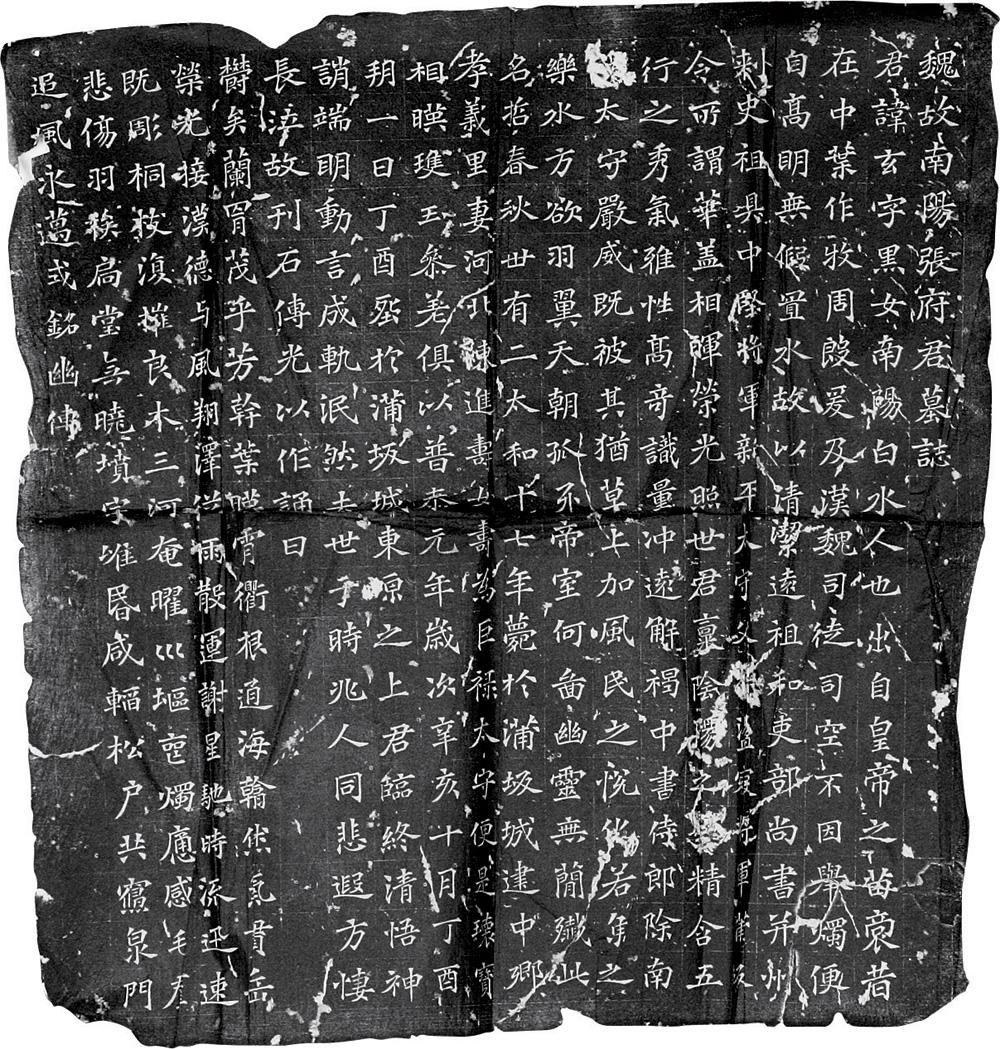 魏故南陽張府君墓誌
君諱玄字黑女南陽白水人也出自皇帝之苗裔昔
在中葉作牧周殷爰及漢魏司徒司空不因舉燭便
自高明無假置水故以清潔遠祖和吏部尚書并州
刺史祖具中堅將軍新平太守父盪寇將軍蒲坂
令所謂華蓋相暉榮光照世君稟陰陽之純精含五
行之秀氣雅性高奇識量沖遠解褐中書侍郎除南
陽太守嚴威既被其猶草上加風民之悅化若魚之
樂水方欲羽翼天朝抓牙帝室何啚幽靈無簡殲此
名哲春秋卅有二太和十七年薨於蒲坂城建中鄉
孝義里妻河北陳進壽女壽為巨祿太守便是瓌寶
相暎瓊玉參差俱以普泰元年歲次辛亥十月丁酉
朔一日丁酉塟於蒲坂城東原之上君臨終清悟神
誚端明動言成軌泯然去世于時兆人同悲遐方悽
長泣故刊石傳光以作誦曰
欝矣蘭冑茂乎芳幹葉暎霄衢根通海翰伏氣貫岳
榮光接漢德与風翔澤從雨散運謝星馳時流迅速
既彫桐枝復摧良木三河奄曜巛塸喪燭痝感毛群
悲傷羽族扃堂無曉墳宇唯昬咸輀松户共寢泉門
追風永邁式銘幽傳